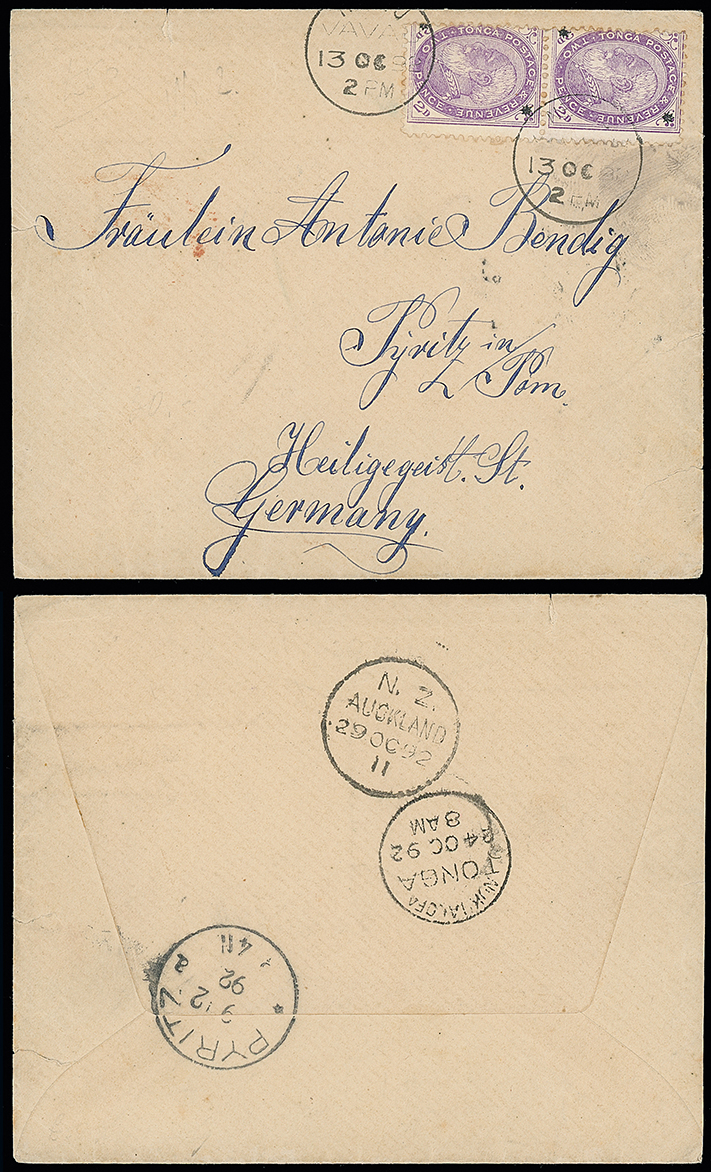 VAVAU
13 OC
2 PM
TONGA POSTAGE & REVENUE
TWO PENCE
2D
TONGA POSTAGE & REVENUE
TWO PENCE
2D
13 OC
2 PM
Fräulein Antonie Bendig
Pyritz in
Pom.
Heiligegeist. St.
Germany.
N. Z.
AUCKLAND
29 OC 92
11
NUKUALOFA
TONGA
24 OC 92
8 AM
PYRITZ
9 12
92